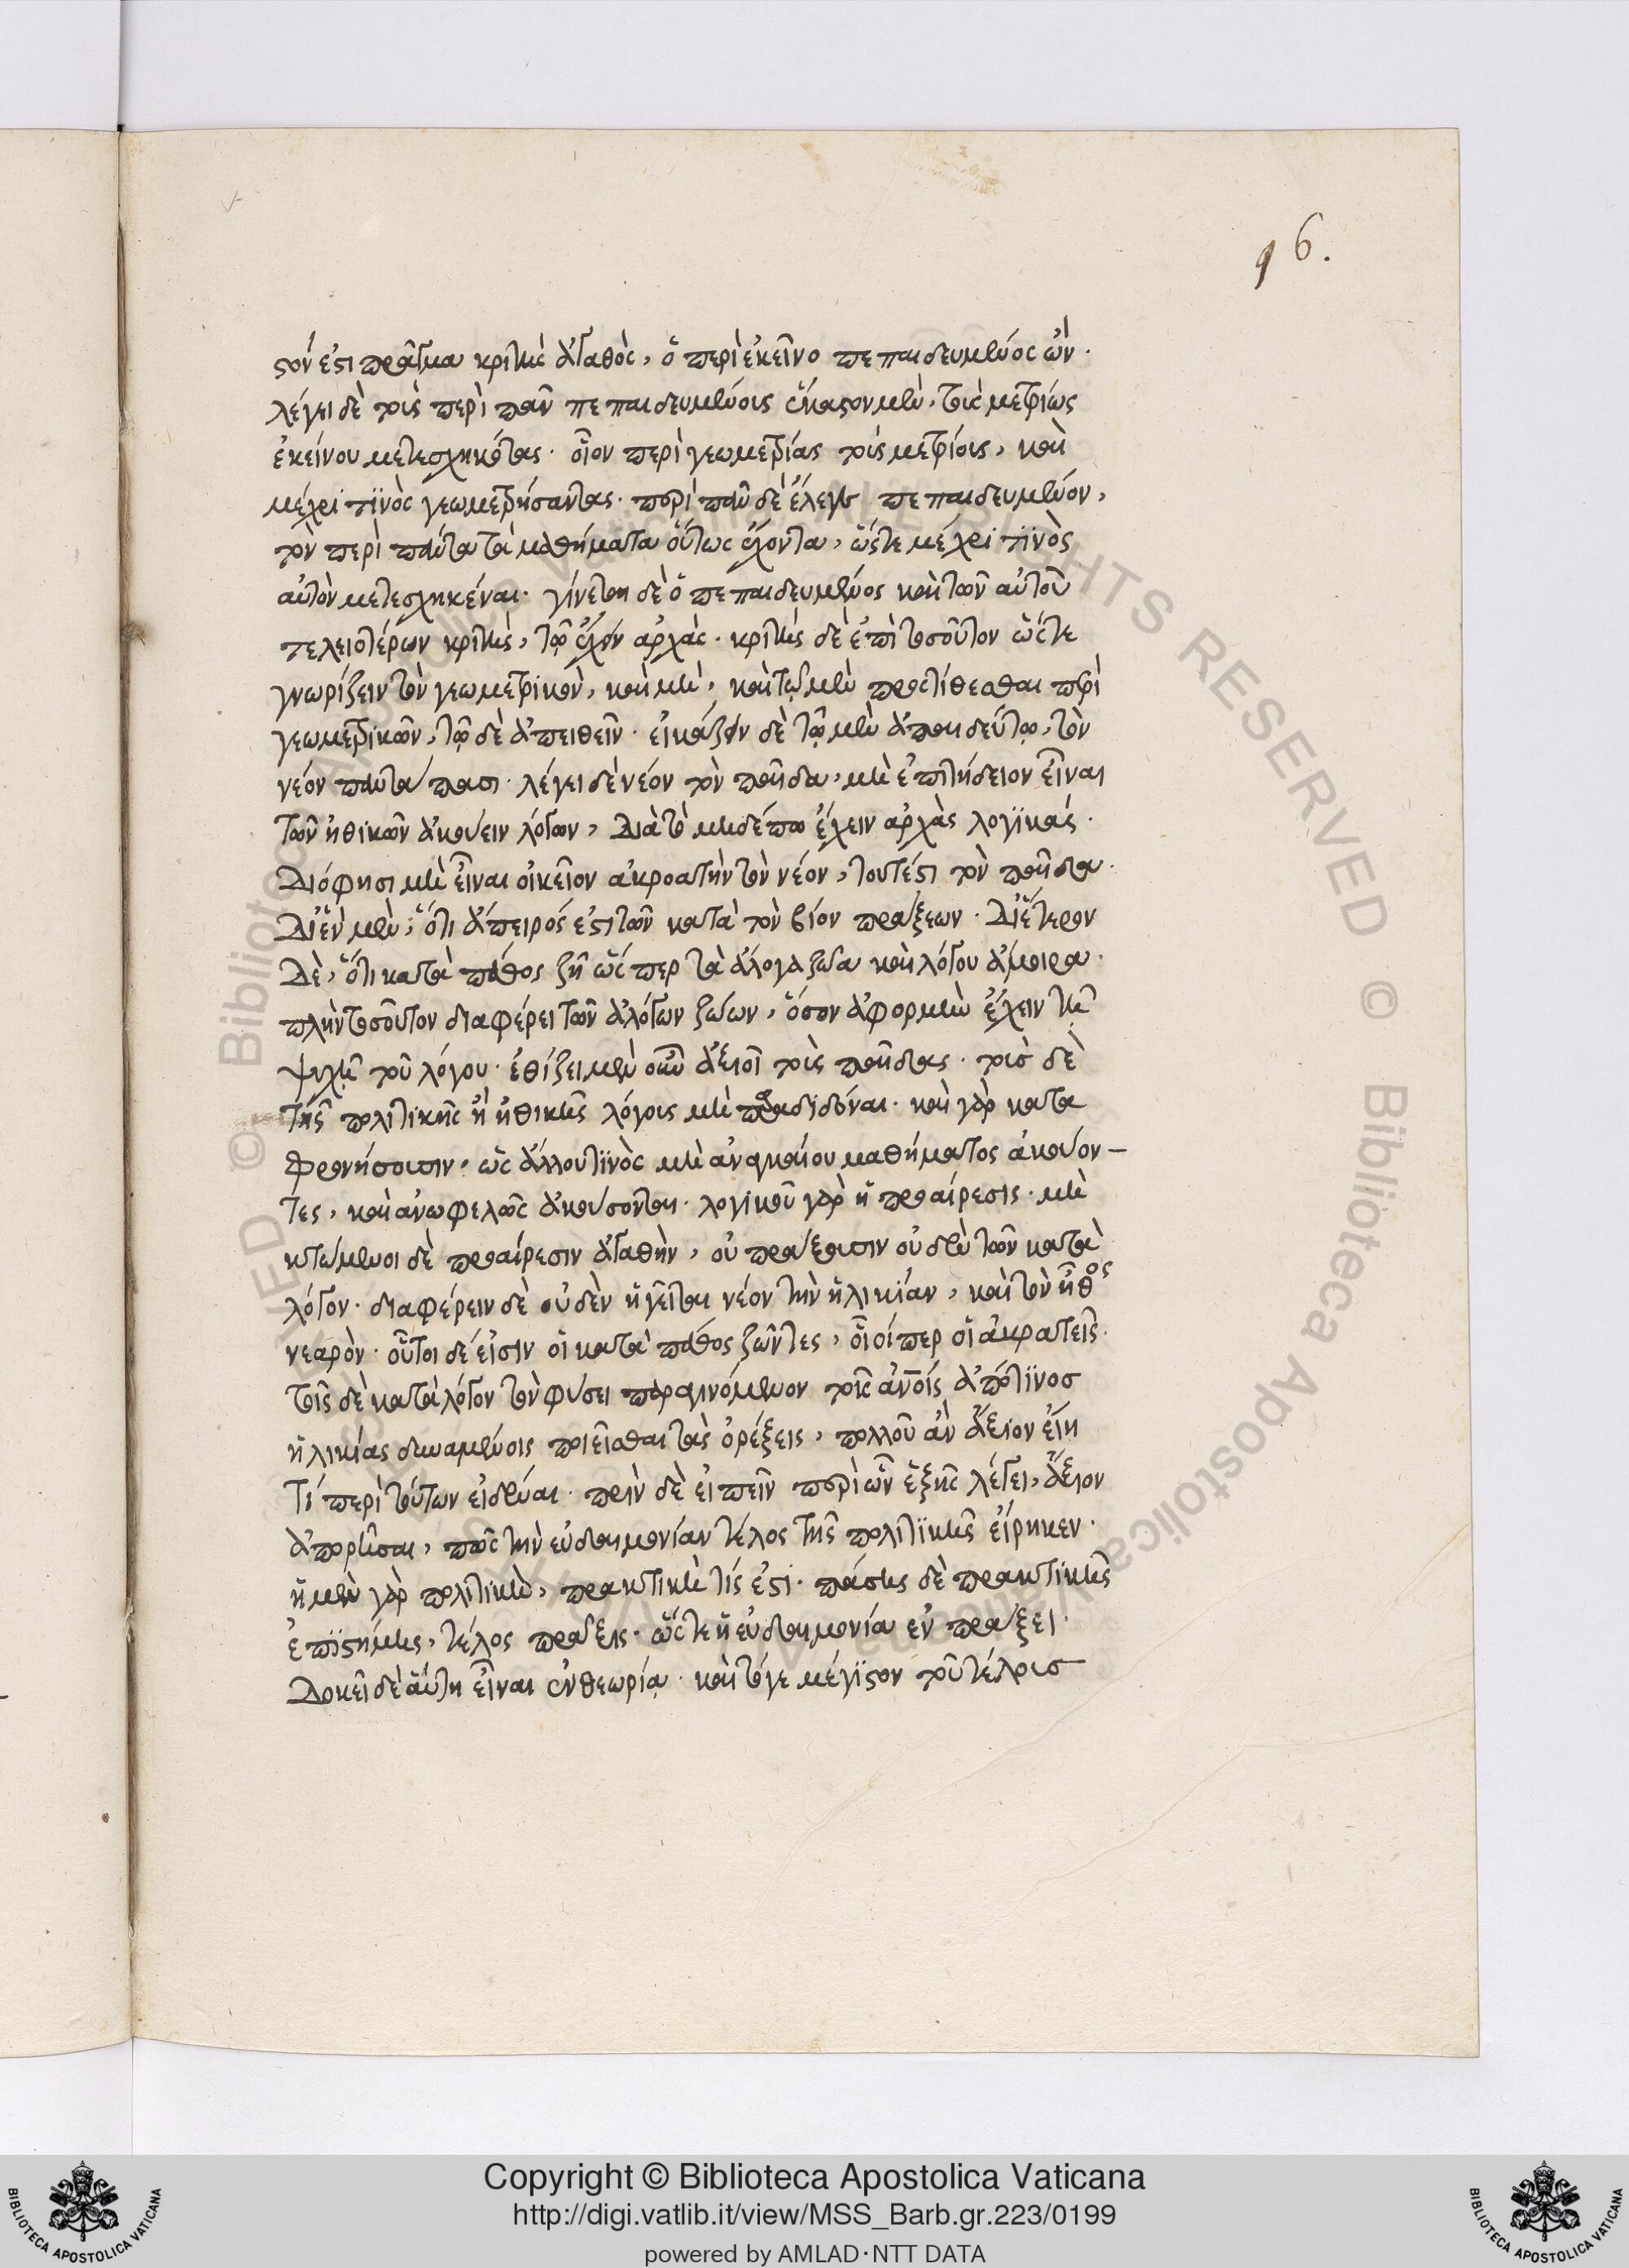 96.
στόν ἐστι πρᾶγμα κριτὴς ἀγαθὸς, ὁ περὶ ἐκεῖνο πεπαιδευμένος ὤν.
λέγει δὲ τοὺς περὶ πᾶν πεπαιδευμένους ἕκαστον μὲν, τοὺς μετρίως
ἐκείνου μετεσχηκότας. οἷον περὶ γεωμετρίας τοὺς μετρίους, καὶ
μέχρι τϊνὸς γεωμετρήσαντας. περὶ πᾶν δὲ ἔλεγε πεπαιδευμένον,
τὸν περὶ πάντα τὰ μαθήματα οὕτως ἔχοντα, ὥστε μέχρι τϊνὸς
αὐτὸν μετεσχηκέναι. γίνεται δὲ ὁ πεπαιδευμένος καὶ τῶν αὐτοῦ
τελειοτέρων κριτὴς, τῷ ἔχειν ἀρχάς. κριτὴς δὲ ἐπὶ τοσοῦτον ὥστε
γνωρίζειν τὸν γεωμετρικὸν, καὶ μὴ, καὶ τῷ μὲν προστίθεσθαι περὶ
γεωμετρικῶν, τῷ δὲ ἀπειθεῖν. εἰκάζειν δὲ τῷ μὲν ἀπαιδεύτῳ, τὸν
νέον παντάπασι. λέγει δὲ νέον τὸν παῖδα, μὴ ἐπιτήδειον εἶναι
τῶν ἠθικῶν ἀκούειν λόγων, διὰ τὸ μηδέπω ἔχειν ἀρχὰς λογϊκάς.
διό φησι μὴ εἶναι οἰκεῖον ἀκροατὴν τὸν νέον, τουτέστι τὸν παῖδα.
δι' ἓν μὲν, ὅτι ἄπειρός ἐστι τῶν κατὰ τὸν βίον πράξεων. δι' ἕτερον
δὲ, ὅτι κατὰ πάθος ζῇ ὥσπερ τὰ ἄλογα ζῶα καὶ λόγου ἄμοιρα.
πλὴν τοσοῦτον διαφέρει τῶν ἀλόγων ζώων, ὅσον ἀφορμὴν ἔχειν τῇ
ψυχῇ τοῦ λόγου. ἐθίζει μὲν οὖν ἀξιοῖ τοὺς παῖδας. τοὺσ δὲ
τῆς πολιτικῆς ἢ ἠθικῆς λόγους μὴ παραδϊδόναι. καὶ γὰρ κατα
φρονήσουσιν, ὡς ἄλλου τϊνὸς μὴ ἀναγκαίου μαθήματος ἀκούον-
τες, καὶ ἀνωφελῶς ἀκούσονται. λογικοῦ γὰρ ἡ προαίρεσις. μὴ
κτώμενοι δὲ προαίρεσιν ἀγαθὴν, οὐ πράξουσιν οὐδὲν τῶν κατὰ
λόγον. διαφέρειν δὲ οὐδὲν ἡγεῖται νέον τὴν ἡλικίαν, καὶ τὸν ἦθος
νεαρὸν. οὗτοι δέ εἰσιν οἱ κατὰ πάθος ζῶντες, οἷοί περ οἱ ἀκρατεῖς.
τοῖς δὲ κατὰ λόγον τὸν φύσει παραγινόμενον τοῖς ἀνοις ἀπό τϊνοσ
ἡλικίας δυναμένοις ποιεῖσθαι τὰς ὀρέξεις, πολλοῦ ἂν ἄξιον εἴη
τί περὶ τούτων εἰδέναι. πρὶν δὲ εἰπεῖν περὶ ὧν ἑξῆς λέγει, ἄξιον
ἀπορῆσαι, πῶς τὴν εὐδαιμονίαν τέλος τῆς πολιτϊκῆς εἴρηκεν.
ἡ μὲν γὰρ πολιτικὴ, πρακτικὴ τίς ἐστι. πάσης δὲ πρακτικῆς
ἐπϊστήμης, τέλος πρᾶξις. ὥστε ἡ εὐδαιμονία ἐν πράξει.
δοκεῖ δὲ αὕτη εἶναι ἐν θεωρίᾳ. καὶ τόγε μέγϊστον τοῦ τέλουσ
Copyright © Biblioteca Apostolica Vaticana
http://digi.vatlib.it/view/MSS_Barb.gr.223/0199
powered by AMLAD·NTT DATA